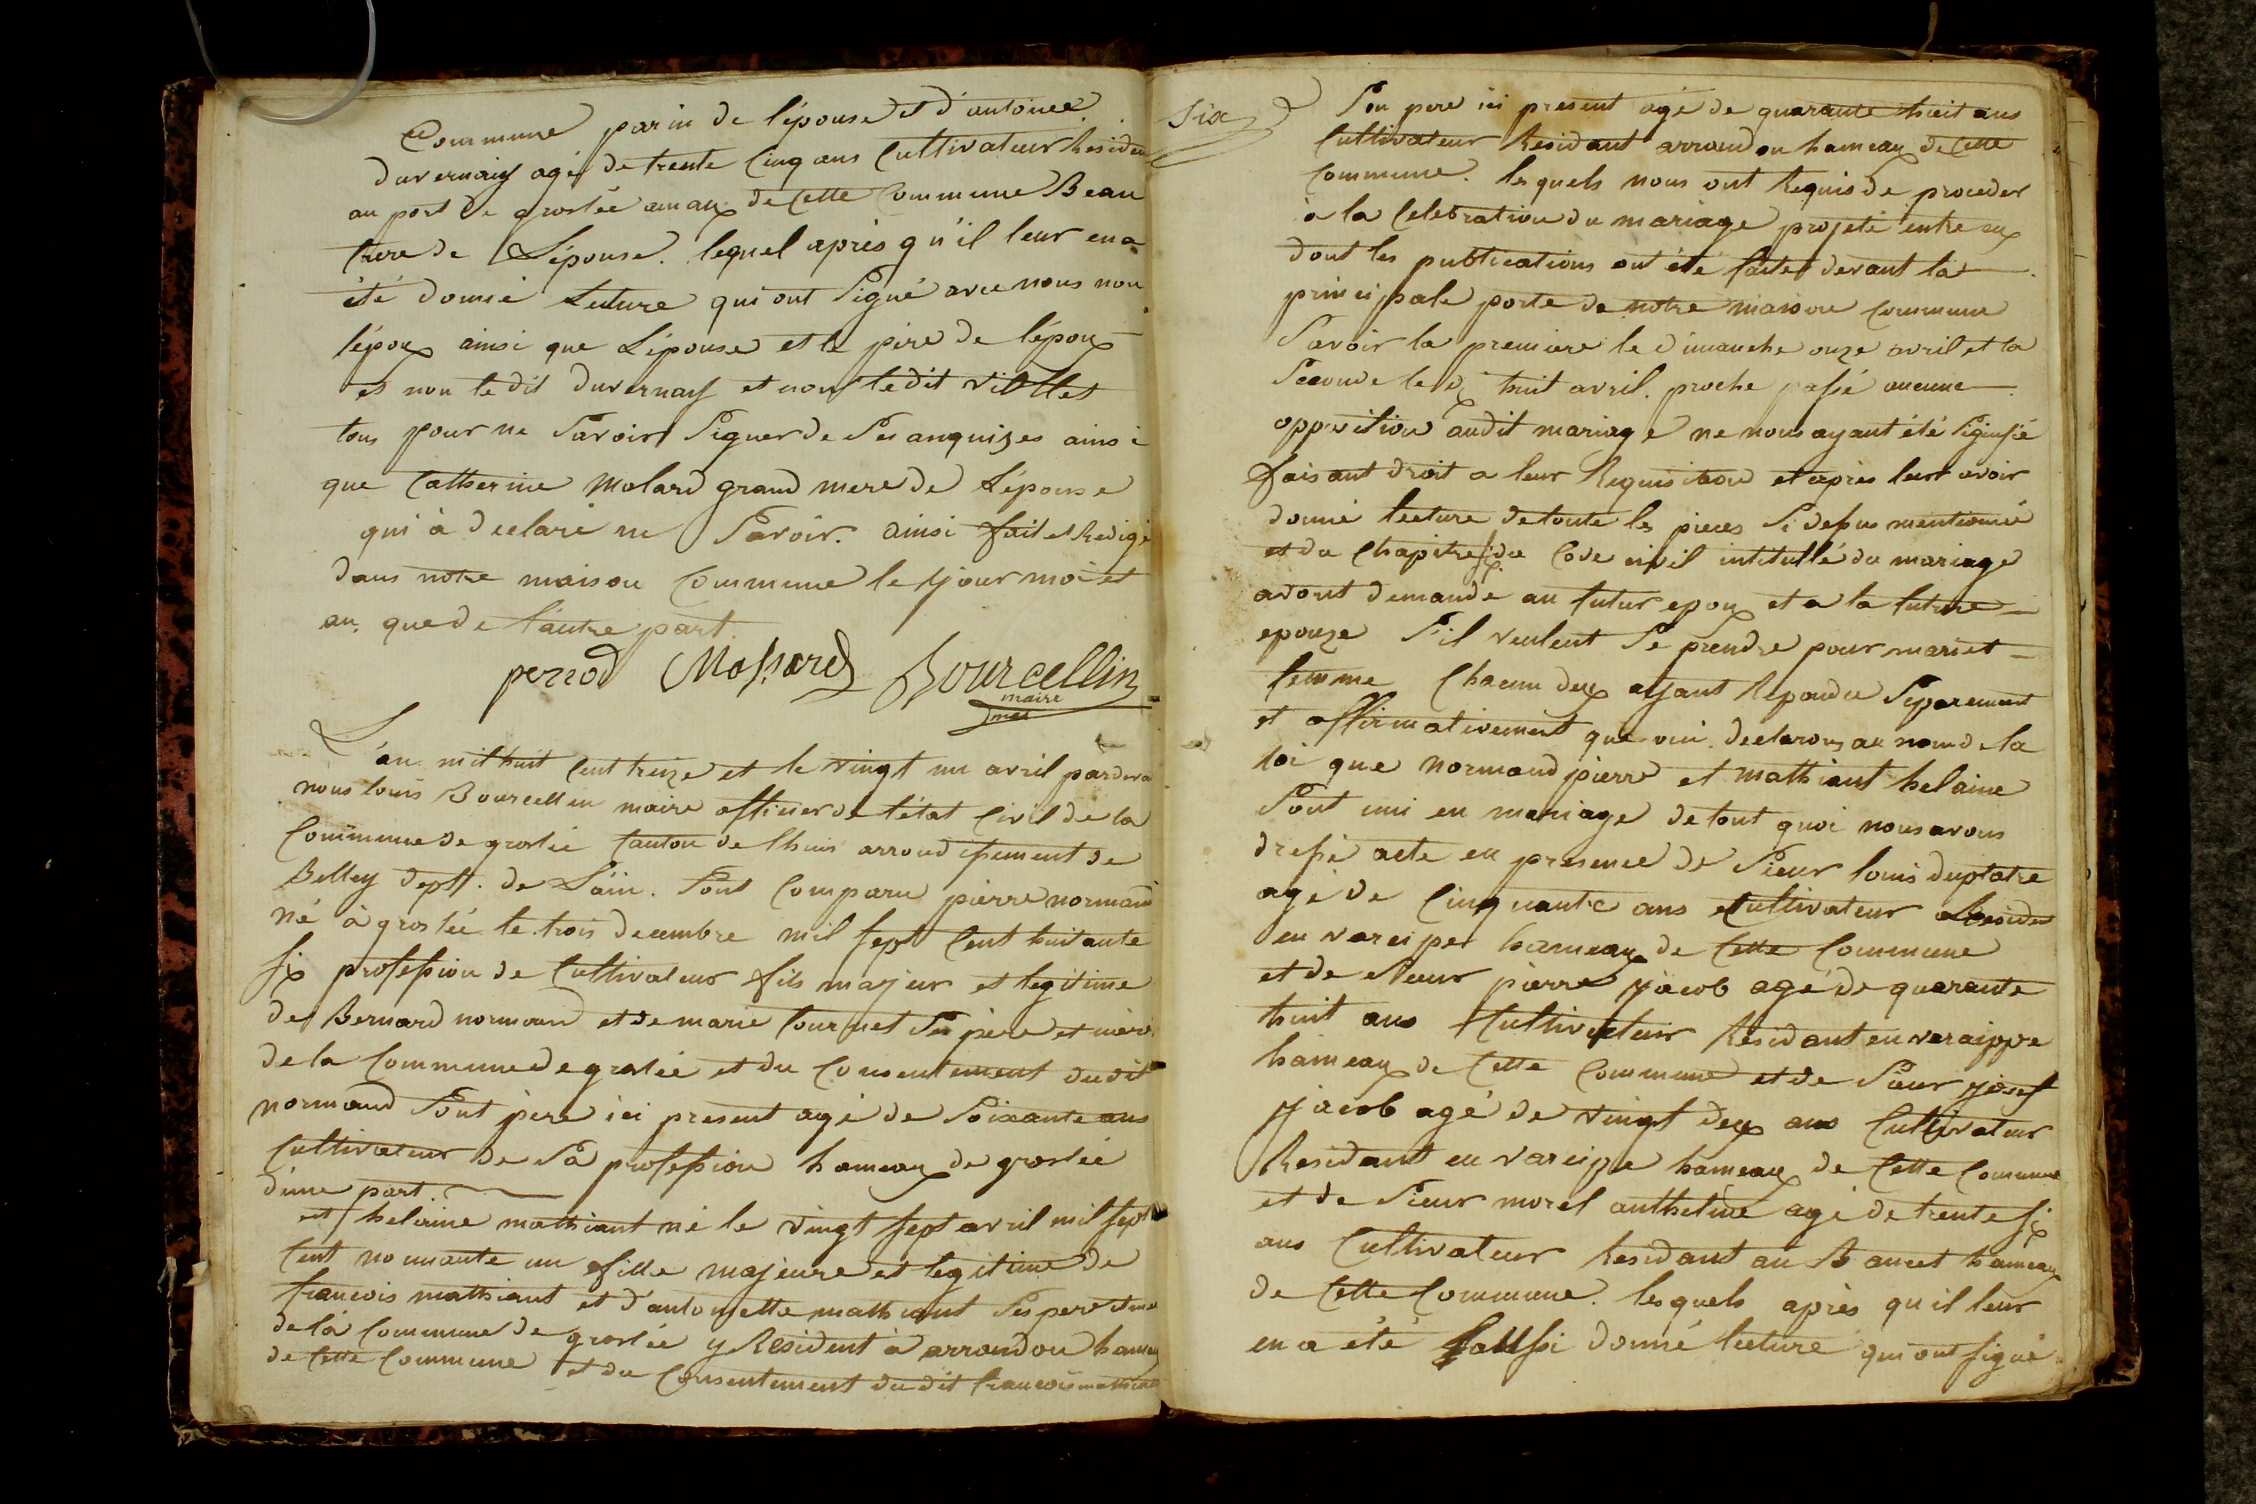 Commune parin de l'épouse et d'antoine
duvernay agé de trente Cinq ans Cultivateur Residen
au port de groslée amaux de Cette Commune Beau
frere de L'épouse. lequel après qu'il leur en a
été donné Lecture qui ont Signé avec nous non
l'époux ainsi que L'épouse et le père de l'époux
et non le dit Duvernay et non le dit Viollet
tous pour ne Savoir Signer de Ses anquizes ainsi
que Catherine Molard grand mere de L'épouse
qui à declaré ne Savoir. ainsi fait et Redigé
dans notre maison Commune le jour moi et
an que de l'autre part.
perrod Massard Bourcellin
maire
L'an mil huit Cent treize et le vingt un avril pardeva
nous louis Bourcellin maire officier de l'état Civil de la
Commune de groslée Canton de lhuis arrondissement de
Belley dept. de L'ain. Sont Comparu pierre normand
né à groslée le trois decembre mil sept Cent huitante
six profession de Cultivateur fils majeur et legitime
de Bernard normand et de marie Cournet Ses père et mère
de la Commune de groslée et du Consentement dudit
normand Sont père ici present agé de Soixante ans
Cultivateur de Sa profession hameaux de groslée
d'une part.
et helaine mathiant né le vingt sept avril mil sept
Cent nonante un fille majeure et legitime de
francois mathiant et d'antoinette mathiant Ses pere et me
de la Commune de groslée y Resident à arrondou hameau
de Cette Commune et du Consentement du dit francois mathiant
Six
Son pere ici present agé de quarante huit ans
Cultivateur Residant arrandon hameaux de Cette
Commune. lesquels nous ont Requis de proceder
à la Celebration du mariage projeté entre eux
dont les publications ont été faites devant la
principale porte de notre maison Commune
Savoir la premiere le dimanche onze avril et la
Seconde le dix huit avril. proche passé aucune
opposition audit mariage ne nous ayant été Signifié
faisant droit a leur Requisition et après leur avoir
donné lecture de toute les pieces Si dessus mentionné
et du Chapitre six du Code civil intitullé du mariage
avont demandé au futur epoux et a la future
epouze S'il veulent Se prendre pour mari et
femme Chacun deux ayant Repondu Separement
et affirmativement que oui. declarons au nom de la
loi que normand pierre et mathiant helaine
Sont uni en mariage de tout quoi nous avons
dressé acte en presence de Sieur louis duplatre
agé de Cinquante ans Cultivateur Residant
en vareipe hameaux de Cette Commune
et de Sieur pierre jacob agé de quarante
huit ans Cultivateur Residant en varaippe
hameaux de Cette Commune et de Sieur josef
jacob agé de vingt deux ans Cultivateur
Residant en vareippe hameaux de Cette Commune
et de Sieur morel anthelme agé de trente six
ans Cultivateur Residant au Bancet hameaux
de Cette Commune. lesquels après qu'il leur
en a été aussi donné lecture qui ont signé